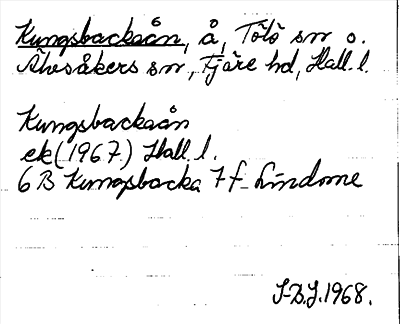 Kungsbackaån, å, Tölö sn o.
Älvsåkers sn, Fjäre hd, Hall. l.
Kungsbackaån
ek (1967) Hall. l.
6B Kungsbacka 7f Lindome
S-B.J. 1968.